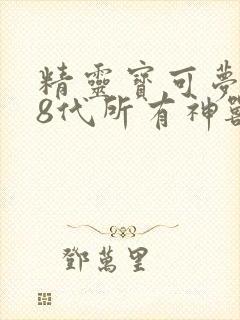 精靈寶可夢
8代所有神獸
鄧萬里